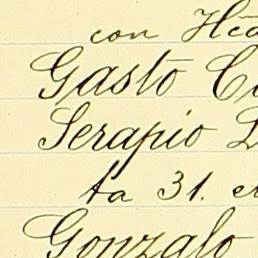 con Hca
Gasto C
Serapio L
ta 31. e
Gonzalo